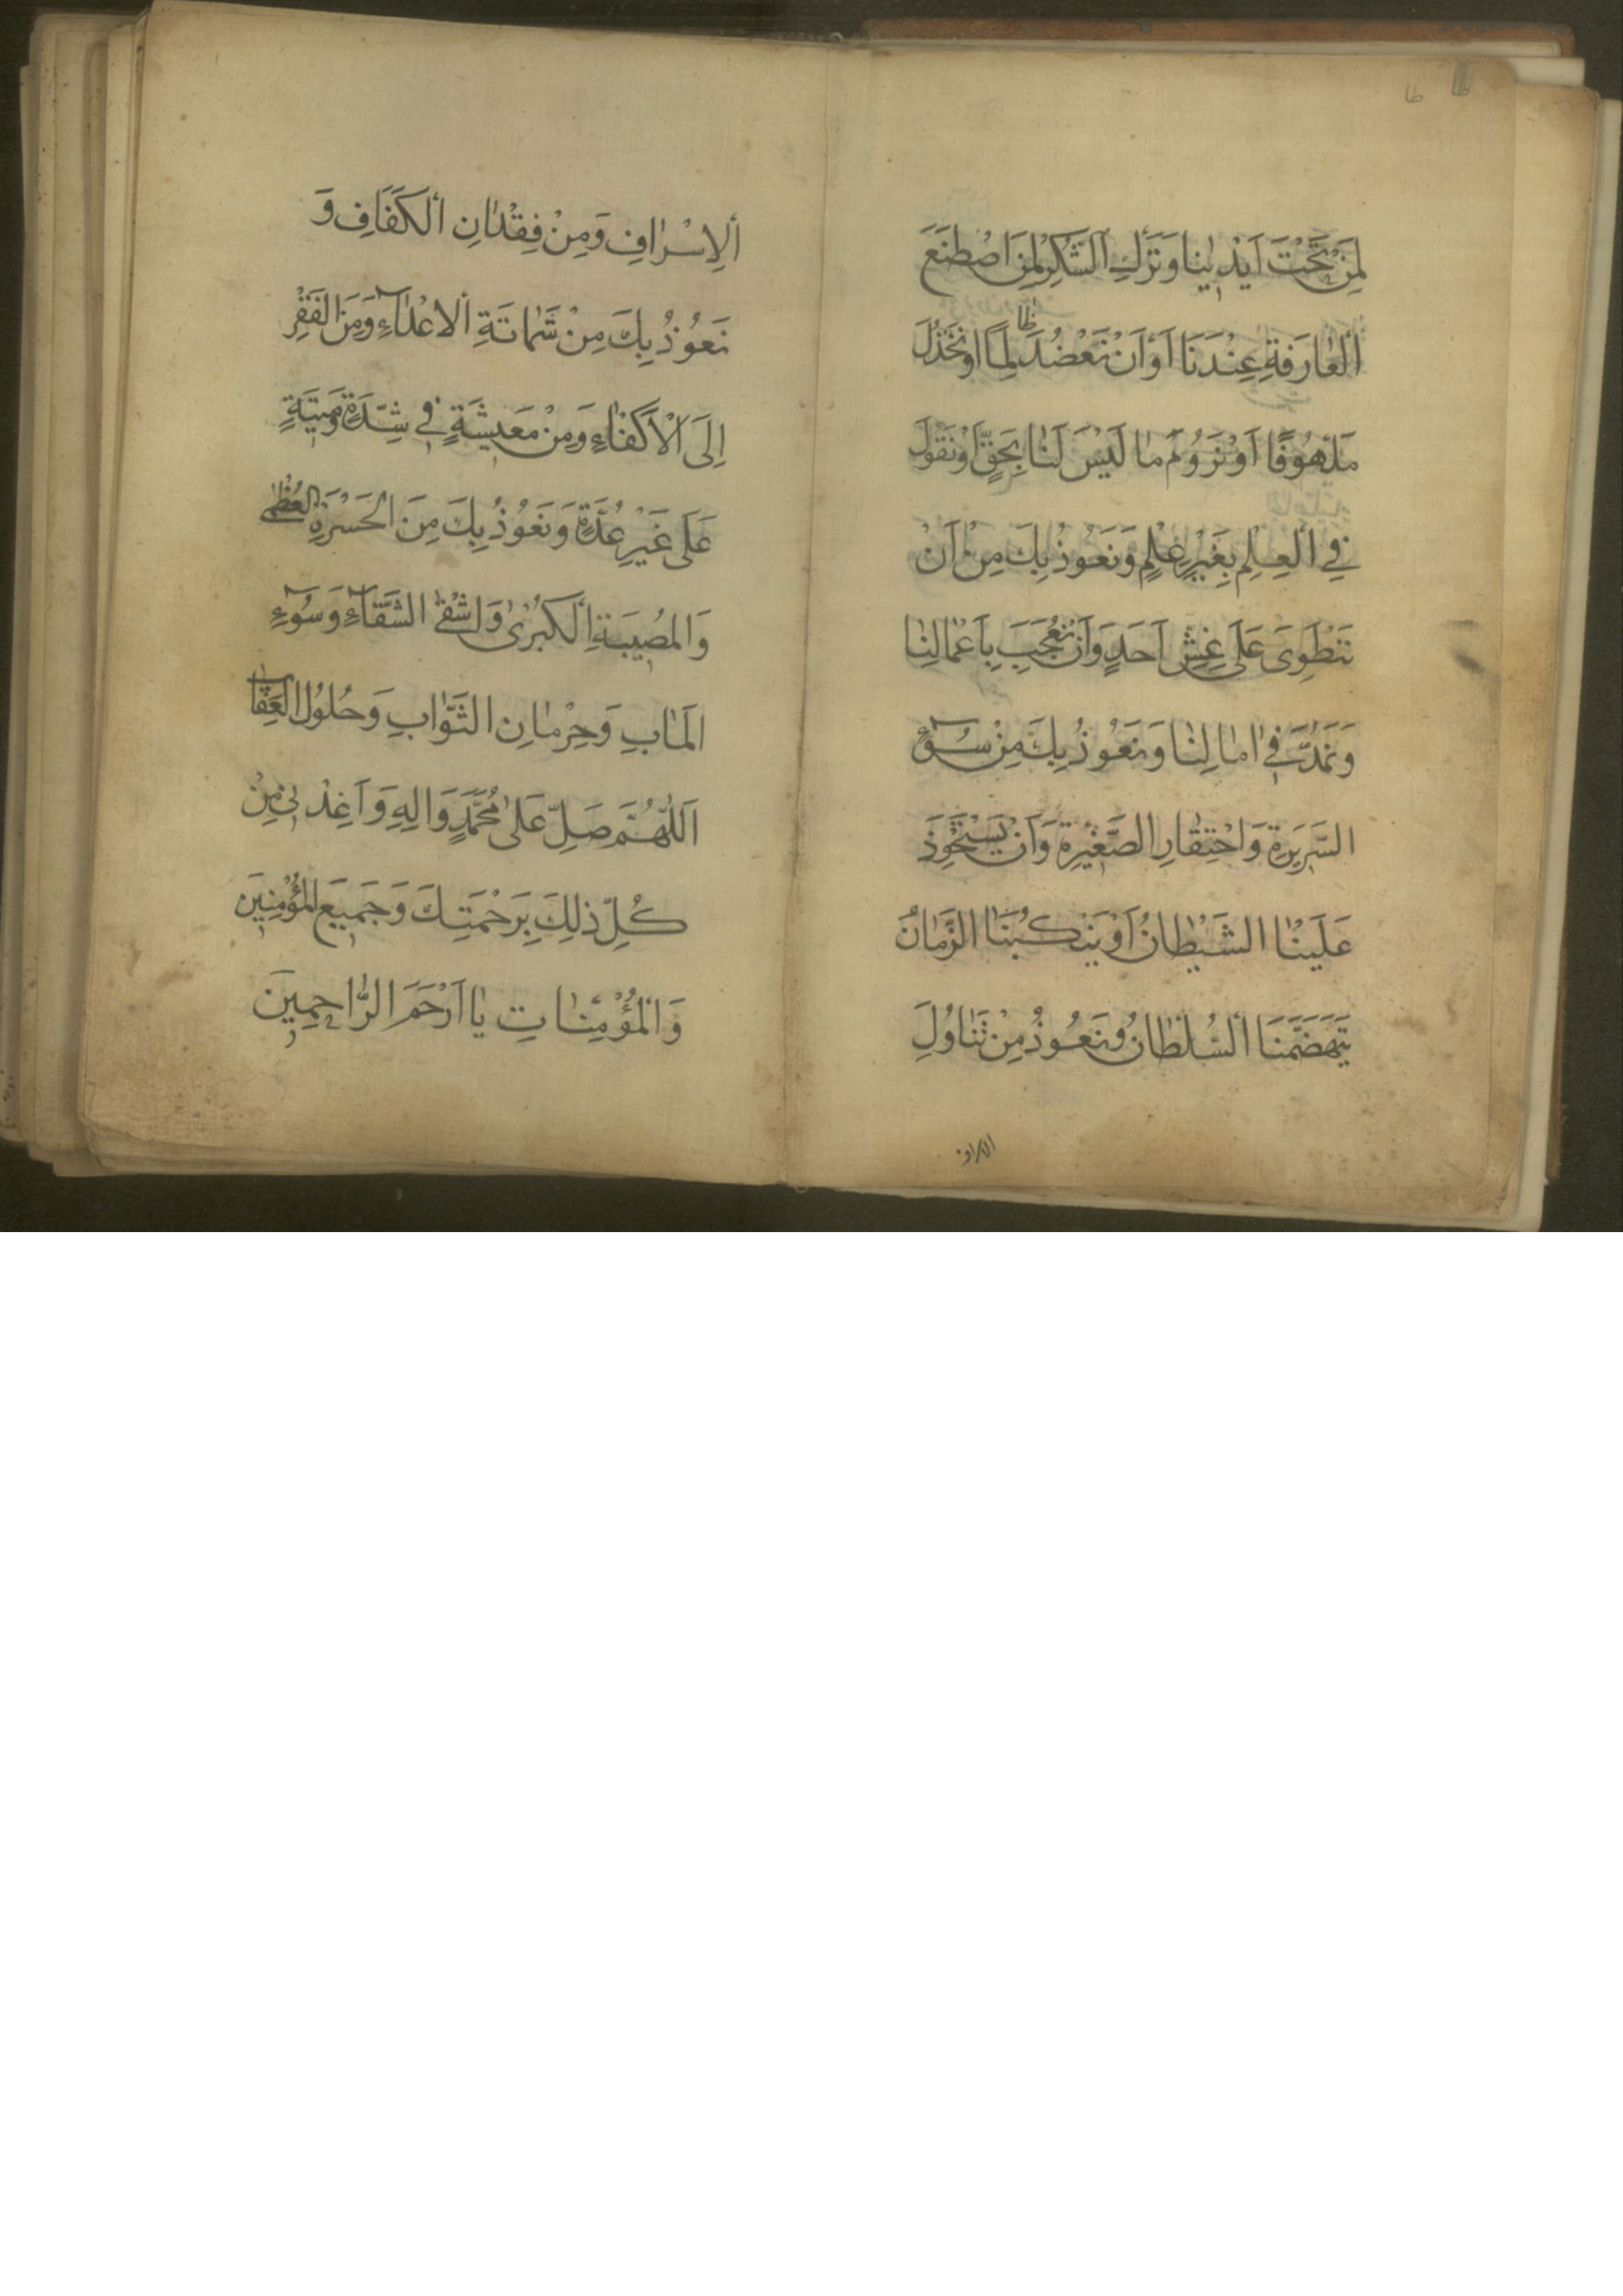 لِمَنْ تَحْتَ اَيْدِينا وَتَرْكِ الشُّكْرِ لِمَنِ اصْطَنَعَ
الْعارِفَةَ عِنْدَنَا اَوْ اَنْ نَعْضُدَ ظالِمًا اَوْ نَخْذُلَ
مَلْهُوفًا اَوْ نَرُومَ ما لَيْسَ لَنا بِحَقٍّ اَوْ نَقُولَ
فِي الْعِلْمِ بِغَيْرِ عِلْمٍ وَنَعُوذُ بِكَ مِنْ اَنْ
نَنْطَوِيَ عَلٰى غِشِّ اَحَدٍ وَاَنْ نُعْجَبَ بِاَعْمالِنا
وَنَمُدَّ فِي امالِنا وَنَعُوذُ بِكَ مِنْ سُوءِ
السَّرِيرَةِ وَاحْتِقارِ الصَّغِيرَةِ وَاَنْ يَسْتَحْوِذَ
عَلَيْنا الشَّيْطانُ اَوْ يَنْكُبَنَا الزَّمانُ
يَتَهَضَّمَنَا السُّلْطانُ وَنَعُوذُ مِنْ تَناوُلِ
الاسراف
اَلْاِسْرافِ وَمِنْ فِقْدانِ الْكَفَافِ وَ
نَعُوذُ بِكَ مِنْ شَماتَةِ الْاَعْداءِ وَمِنَ الْفَقْرِ
اِلَى الْاَكْفاءِ وَمِنْ مَعِيشَةٍ فِي شِدَّةٍ وَمِيتَةٍ
عَلٰى غَيْرِ عُدَّةٍ وَنَعُوذُ بِكَ مِنَ الْحَسْرَةِ الْعُظْمٰى
وَالْمُصِيبَةِ الْكُبْرٰى وَاَشْقَى الشَّقاءِ وَسُوءِ
الْمَابِ وَحِرْمانِ الثَّوابِ وَحُلُولِ الْعِقابِ
اَللّٰهُمَّ صَلِّ عَلٰى مُحَمَّدٍ وَالِهِ وَاَعِذْنِي مِنْ
كُلِّ ذٰلِكَ بِرَحْمَتِكَ وَجَمِيعَ الْمُؤْمِنِينَ
وَالْمُؤْمِناتِ يا اَرْحَمَ الرَّاحِمِينَ